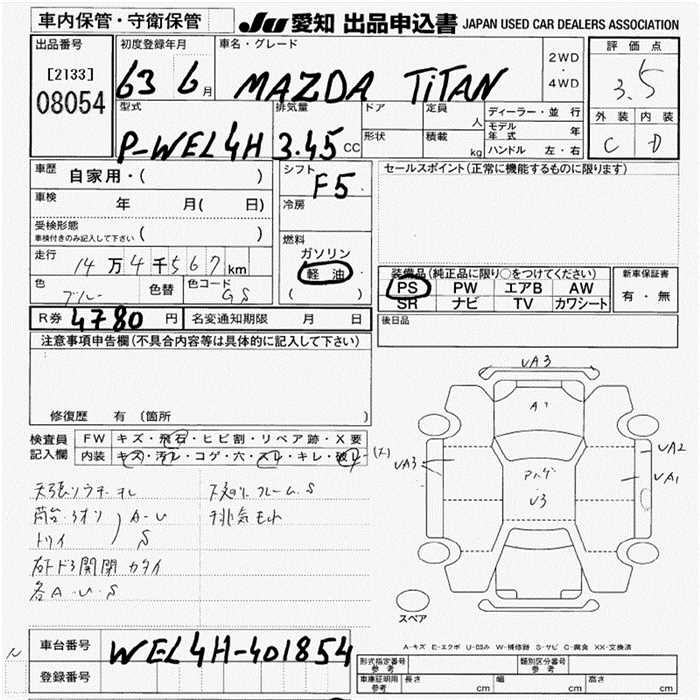 車内保管・守衛保管
JU 愛知 出品申込書 JAPAN USED CAR DEALERS ASSOCIATION
出品番号
[2133]
08054
初度登録年月
63 6月
車名・グレード
MAZDA TiTAN
2WD
・
4WD
評価点
3.5
外装 内装
C D
型式
P-WEL4H
排気量
3.45 CC
ドア
形状
定員
人
積載
kg
ディーラー・並行
モデル年式 年
ハンドル 左・右
車歴
自家用・( )
車検
年 月( 日)
受検形態
車検付きのみ記入して下さい ( )
走行
14万4千567km
色
ブルー
色替
色コード
GS
シフト
F5
冷房
燃料
ガソリン
軽油
( )
セールスポイント(正常に機能するものに限ります)
装備品(純正品に限り○をつけてください)
PS PW エアB AW
SR ナビ TV カワシート
新車保証書
有・無
R券 4780 円
名変通知期限 月 日
後日品
注意事項申告欄(不具合内容等は具体的に記入して下さい)
修復歴 有 (箇所
検査員
記入欄
FW キズ・飛石・ヒビ割・リペア跡・X要
内装 キズ・汚レ・コゲ・穴・スレ・キレ・破レ
荷台・3オリ A-U
S
各A・U・S
排気モレ
UA3
A1
UA3
U3
UA2
UA1
スペア
A-キズ E-エクボ U-凹み W-補修跡 S-サビ C-腐食 XX-交換済
車台番号
WEL4H-401854
登録番号
型式指定番号
参考
類別区分番号
参考
車庫証明用
参考
長さ cm 幅 cm 高さ cm